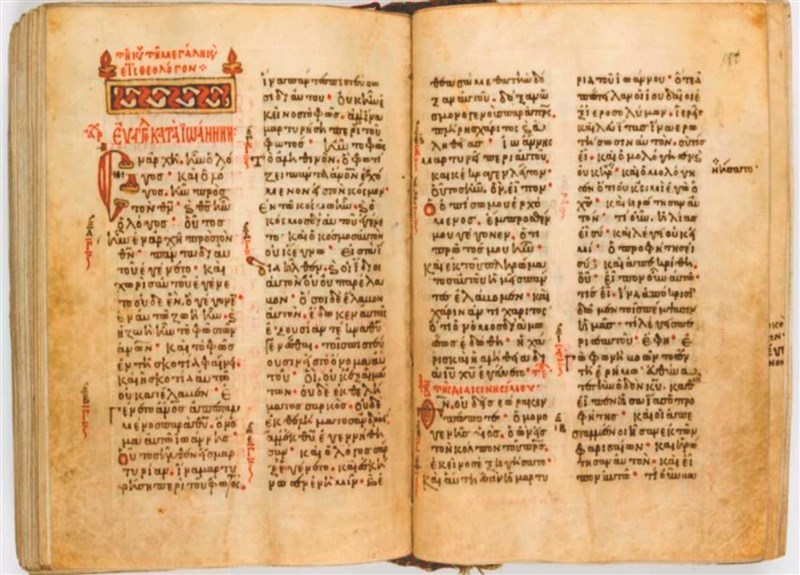 τῇ κυ τῇ μεγάλη κυ
ἐπὶ θεολόγον
ΕΥΑΓΓ ΚΑΤΑ ΙΩΑΝΝΗΝ
Ἐν ἀρχῇ ἦν ὁ λό
γος· καὶ ὁ λό
γος ἦν πρὸς
τὸν θν· καὶ θς ἦν
ὁ λόγος· οὗτος
ἦν ἐν ἀρχῇ πρὸς τὸν
θν· πάντα δι αὐ
τοῦ ἐγένετο· καὶ
χωρὶς αὐτοῦ ἐγένε
το οὐδὲ ἕν. ὃ γέγονε
ἐν αὐτῶ ζωὴ ἦν· καὶ
ἡ ζωὴ ἦν τὸ φῶς τῶν
ἀνων· καὶ τὸ φῶς
ἐν τῇ σκοτία φαίνει·
καὶ ἡ σκοτία αὐτὸ
οὐ κατέλαβεν· ἐ
γένετο ἄνος ἀπεσταλ
μένος παρὰ θυ· ὄνο
μα αὐτῶ ἰωάννης
οὗτος ἦλθεν εἰς μαρ
τυρίαν. ἵνα μαρτυ
ρήση περὶ τοῦ φωτός·
ἵνα πάντες πιστεύσω
σι δι αὐτοῦ· οὐκ ἦν ἐ
κεῖνος τὸ φῶς. ἀλλ ἵνα
μαρτυρήση περὶ τοῦ
φωτός· ἦν τὸ φῶς
τὸ ἀληθινόν. ὃ φωτί
ζει πάντα ἄνον ἐρχό
μενον εἰς τὸν κόσμον·
ἐν τῶ κόσμω ἦν· καὶ ὁ
κόσμος δι αὐτοῦ ἐγένε
το· καὶ ὁ κόσμος αὐτὸν
οὐκ ἔγνω· εἰς τὰ ἴ
δια ἦλθεν· καὶ οἱ ἴδιοι
αὐτὸν οὐ παρέλα
βον· ὅσοι δὲ ἔλαβον
αὐτὸν. ἔδωκεν αὐτοῖς
ἐξουσίαν τέκνα θυ
γενέσθαι· τοῖς πιστεύ
ουσιν εἰς τὸ ὄνομα αὐ
τοῦ· οἳ οὐκ ἐξ αἱμά
των· οὐδὲ ἐκ θελή
ματος σαρκός· οὐδὲ
ἐκ θελήματος ἀνδρός
ἀλλ ἐκ θυ ἐγεννήθη
σαν· καὶ ὁ λόγος σαρξ
ἐγένετο· καὶ ἐσκή
νωσεν ἐν ἡμῖν· καὶ ἐ
θεασάμεθα τὴν δό
ξαν αὐτοῦ· δόξαν ὡ
ς μονογενοῦς παρὰ πρς.
πλήρης χάριτος καὶ ἀ
ληθείας· ἰωάννης
μαρτυρεῖ περὶ αὐτοῦ.
καὶ κέκραγε λέγων·
οὗτος ἦν. ὃν εἶπον·
ὁ ὀπίσω μου ἐρχό
μενος. ἔμπροσθέν
μου γέγονεν. ὅτι
πρῶτός μου ἦν·
καὶ ἐκ τοῦ πληρώμα
τος αὐτοῦ ἡμεῖς πάν
τες ἐλάβομεν· καὶ
χάριν ἀντὶ χάριτος·
ὅτι ὁ νόμος διὰ μω
σέως ἐδόθη· ἡ χά
ρις καὶ ἡ ἀλήθεια δι
ὰ ιυ χυ ἐγένετο·
τῇ β τῆς διακινησίμου
Θν οὐδεὶς ἑώρακεν
πώποτε· ὁ μονο
γενὴς υς. ὁ ὢν εἰς
τὸν κόλπον τοῦ πρς·
ἐκεῖνος ἐξηγήσατο·
καὶ αὕτη ἐστὶν ἡ μαρτυ
ρία τοῦ ἰωάννου· ὅτε ἀ
πέστειλαν οἱ ἰουδαῖοι ἐ
ξ ἱεροσολύμων. ἱερεῖς
καὶ λευίτας ἵνα ἐρωτή
σωσιν αὐτόν. σὺ τίς
εἶ· καὶ ὡμολόγησεν καὶ
οὐκ ἠρ· καὶ ὡμολόγη
σεν ὅτι οὐκ εἰμὶ ἐγὼ ὁ
χς· καὶ ἠρώτησαν αὐ
τόν· τί οὖν. ἡλίας
εἶ σύ· καὶ λέγει οὐκ εἰ
μί· ὁ προφήτης εἶ
σύ· καὶ ἀπεκρίθη.
οὔ· εἶπον οὖν αὐτῶ·
τίς εἶ. ἵνα ἀπόκρισι
δῶμεν τοῖς πέμψασιν
ἡμᾶς· τί λέγεις πε
ρὶ σεαυτοῦ· ἔφη· ἐ
γὼ φωνὴ βοῶντος ἐν
τῇ ἐρήμω εὐθύνα
τε τὴν ὁδὸν κυ. καθὼς
εἶπεν ἡσαΐας ὁ προ
φήτης· καὶ οἱ ἀπε
σταλμένοι ἦσαν ἐκ τῶν
φαρισαίων· καὶ ἠρώ
τησαν αὐτόν· καὶ εἶ
πον αὐτῶ· τί οὖν βα